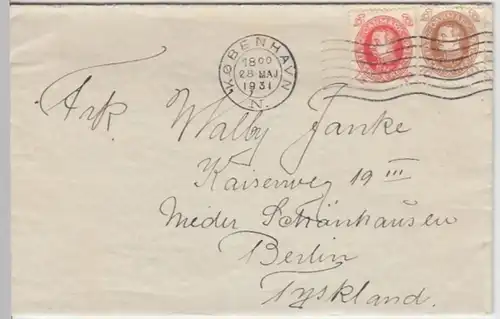 KØBENHAVN
18 00
28 MAJ
1931
N.
DANMARK
Frk Wally Janke
Kaiserweg 19 III
Nieder Schönhausen
Berlin
Tyskland.